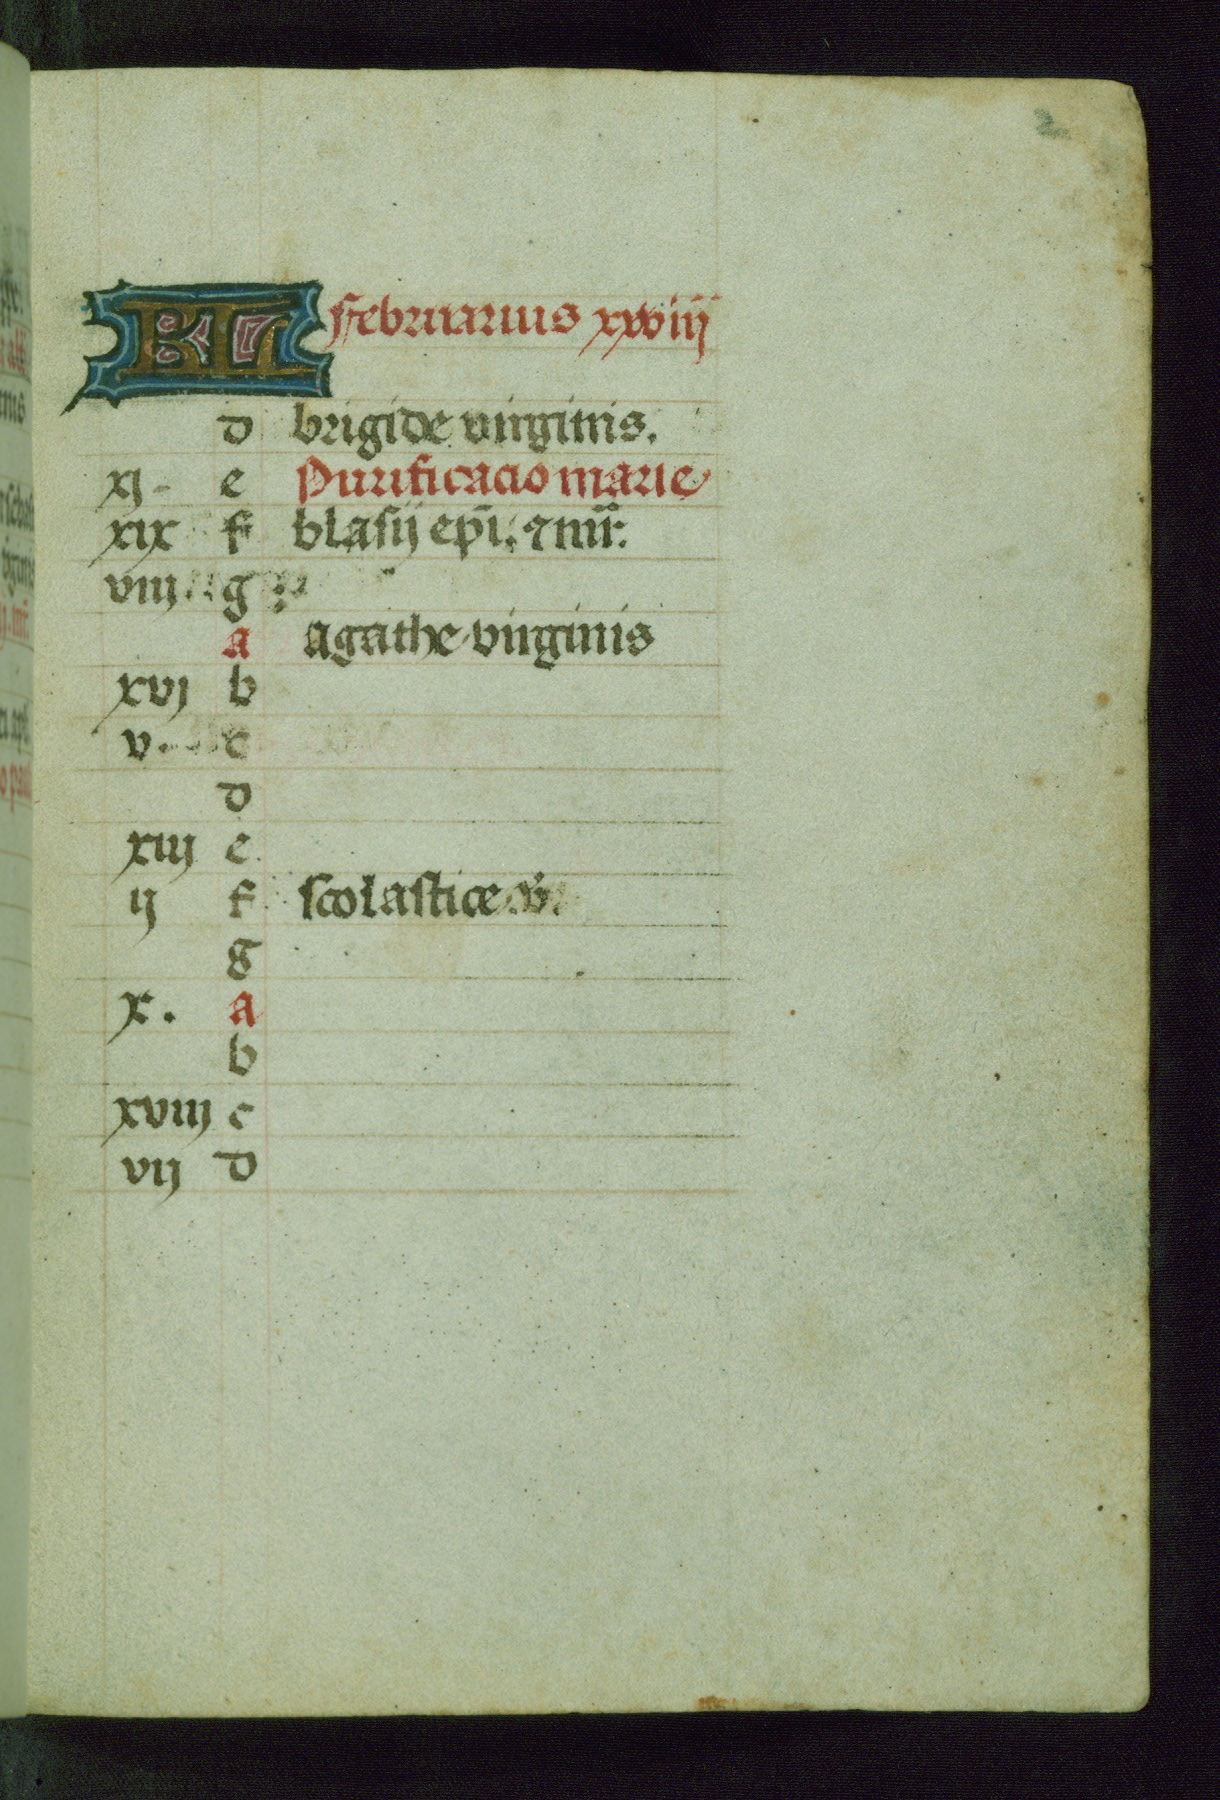 2
KL ffebruarius xxviij
d brigide virginis.
xj e Purificacio marie
xix f blasij epi. ⁊ mr̃.
viij g
a agathe virginis
xvj b
v. c
d
xiij e
ij f scolastice v̄.
g
x. a
b
xviij c
vij d